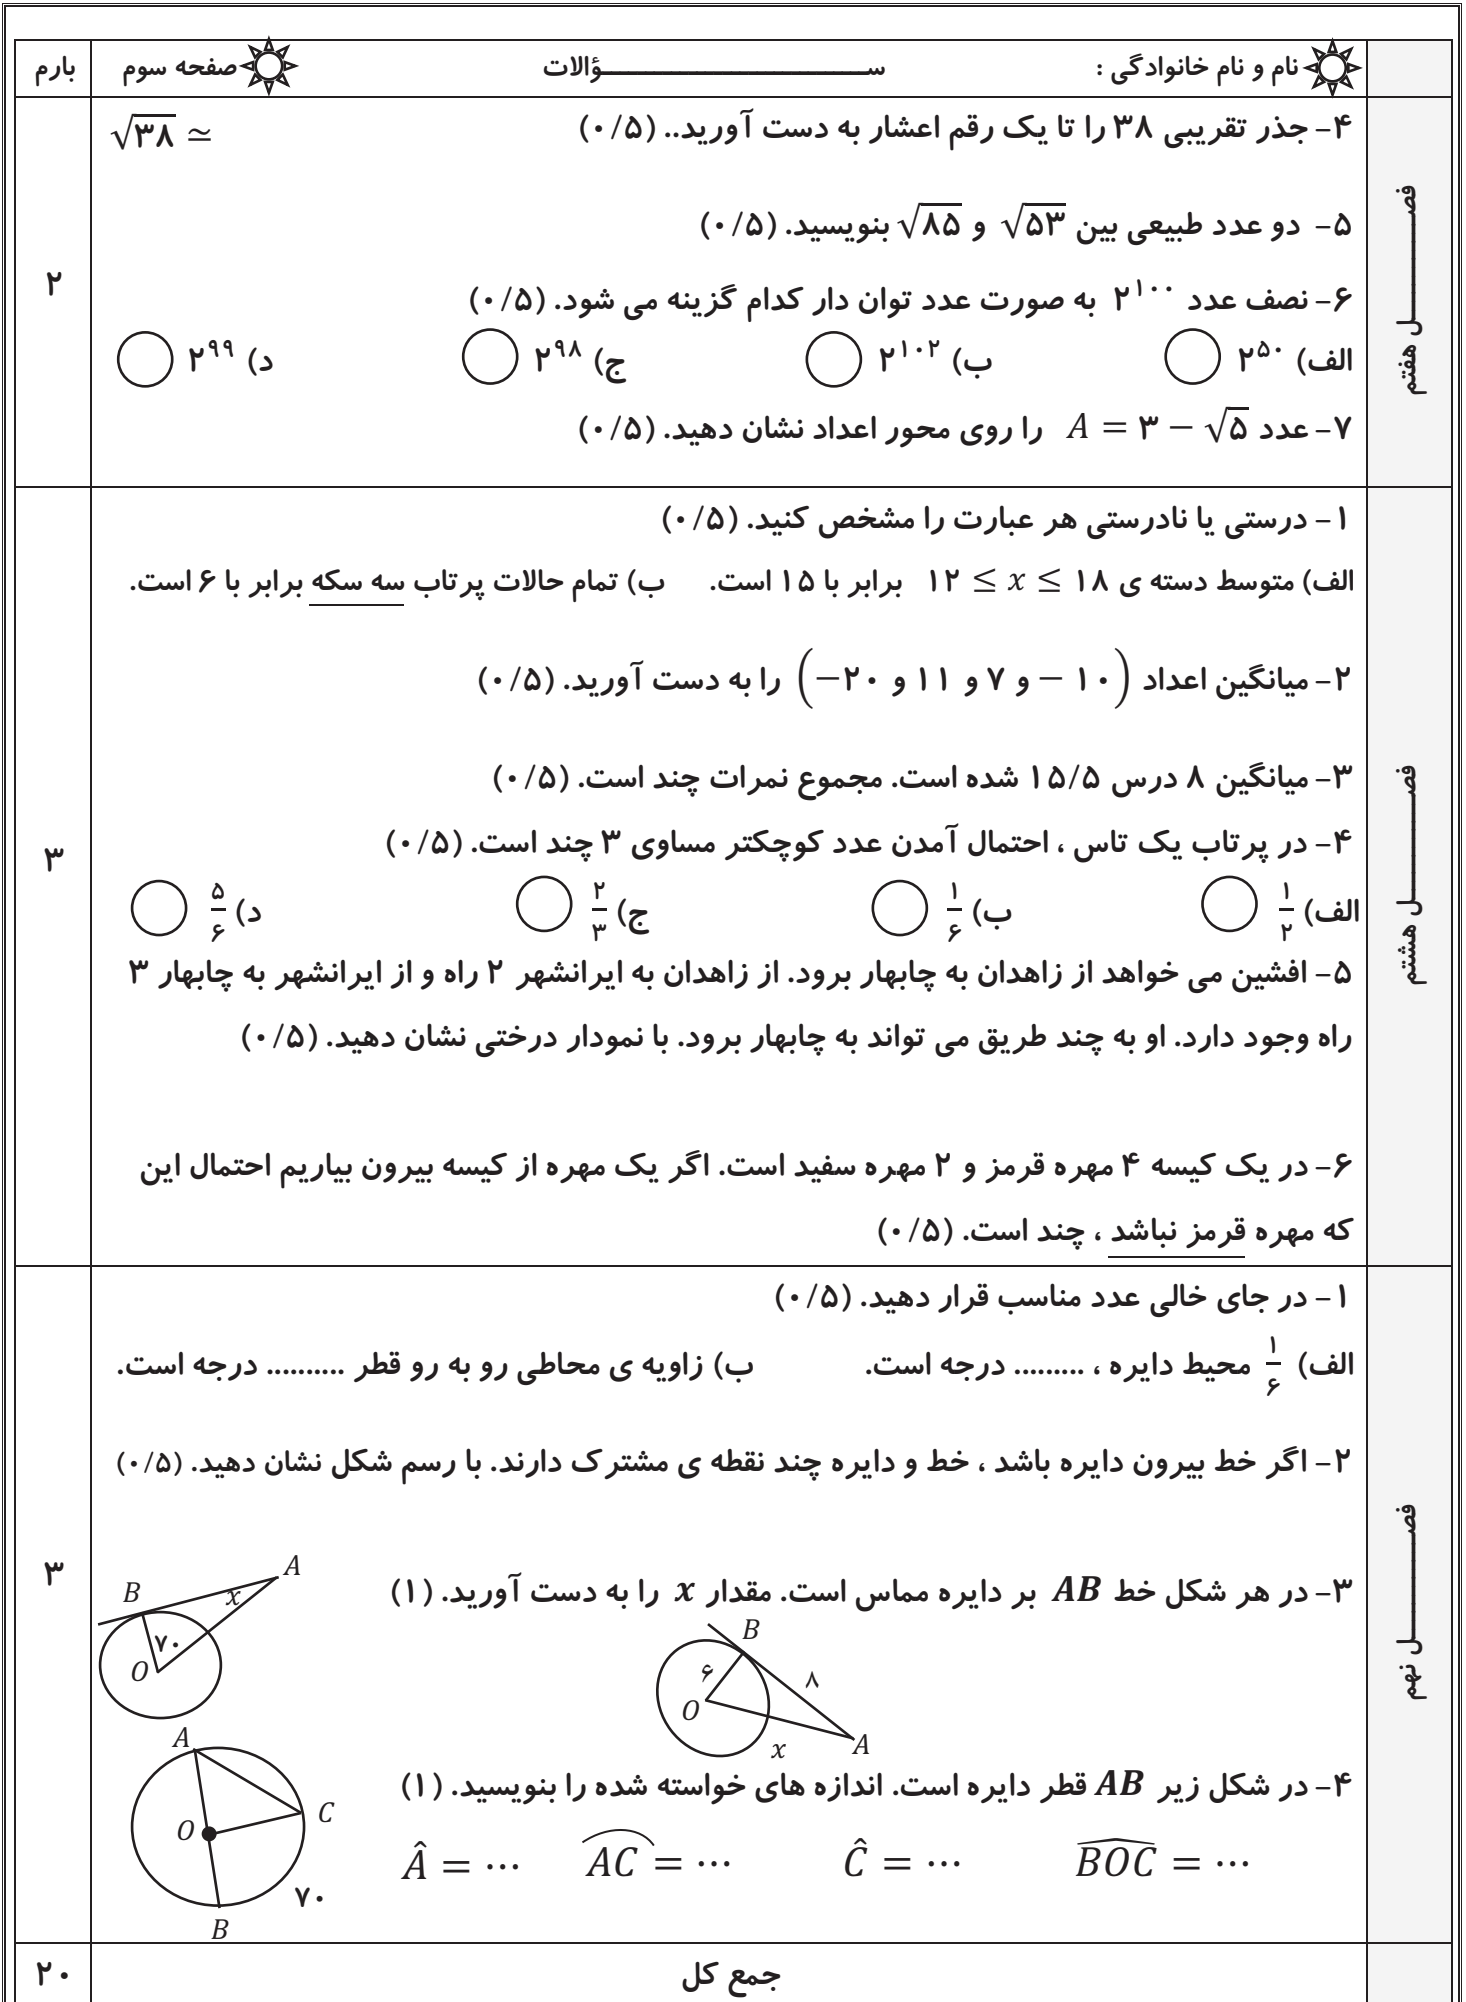 نام و نام خانوادگی : ســـــــــــــــــــؤالات صفحه سوم بارم
فصــــــــــــل هفتم
۲
۴- جذر تقریبی ۳۸ را تا یک رقم اعشار به دست آورید.. (۰/۵) √۳۸ ≃
۵- دو عدد طبیعی بین √۵۳ و √۸۵ بنویسید. (۰/۵)
۶- نصف عدد ۲^۱۰۰ به صورت عدد توان دار کدام گزینه می شود. (۰/۵)
الف) ۲^۵۰ ب) ۲^۱۰۲ ج) ۲^۹۸ د) ۲^۹۹
۷- عدد A = ۳ − √۵ را روی محور اعداد نشان دهید. (۰/۵)
فصــــــــــــل هشتم
۳
۱- درستی یا نادرستی هر عبارت را مشخص کنید. (۰/۵)
الف) متوسط دسته ی ۱۲ ≤ x ≤ ۱۸ برابر با ۱۵ است. ب) تمام حالات پرتاب سه سکه برابر با ۶ است.
۲- میانگین اعداد (−۲۰ و ۱۱ و ۷ و − ۱۰) را به دست آورید. (۰/۵)
۳- میانگین ۸ درس ۱۵/۵ شده است. مجموع نمرات چند است. (۰/۵)
۴- در پرتاب یک تاس ، احتمال آمدن عدد کوچکتر مساوی ۳ چند است. (۰/۵)
الف) ۱/۲ ب) ۱/۶ ج) ۲/۳ د) ۵/۶
۵- افشین می خواهد از زاهدان به چابهار برود. از زاهدان به ایرانشهر ۲ راه و از ایرانشهر به چابهار ۳
راه وجود دارد. او به چند طریق می تواند به چابهار برود. با نمودار درختی نشان دهید. (۰/۵)
۶- در یک کیسه ۴ مهره قرمز و ۲ مهره سفید است. اگر یک مهره از کیسه بیرون بیاریم احتمال این
که مهره قرمز نباشد ، چند است. (۰/۵)
فصــــــــــــل نهم
۳
۱- در جای خالی عدد مناسب قرار دهید. (۰/۵)
الف) ۱/۶ محیط دایره ، ......... درجه است. ب) زاویه ی محاطی رو به رو قطر .......... درجه است.
۲- اگر خط بیرون دایره باشد ، خط و دایره چند نقطه ی مشترک دارند. با رسم شکل نشان دهید. (۰/۵)
۳- در هر شکل خط AB بر دایره مماس است. مقدار x را به دست آورید. (۱)
B
۶
O
۸
x
A
A
B
x
۷۰
O
۴- در شکل زیر AB قطر دایره است. اندازه های خواسته شده را بنویسید. (۱)
Â = ⋯ AC͡ = ⋯ Ĉ = ⋯ BOC̑ = ⋯
A
C
O
۷۰
B
جمع کل ۲۰